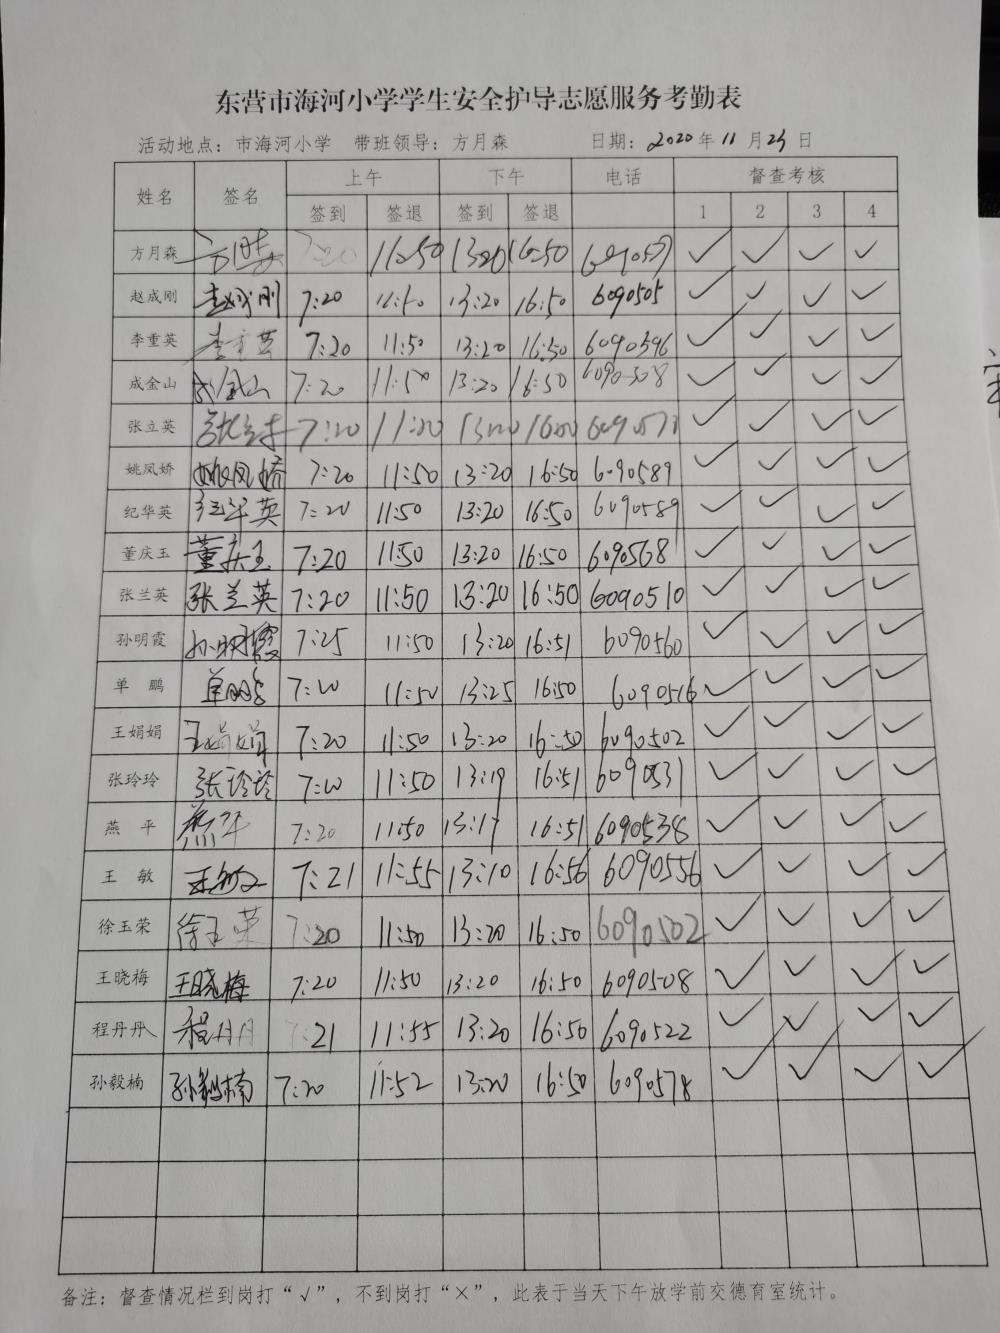 东营市海河小学学生安全护导志愿服务考勤表
活动地点：市海河小学 带班领导：方月森 日期：2020年11月23日
姓名 签名 上午 下午 电话 督查考核
签到 签退 签到 签退 1 2 3 4
方月森 方月森 7:20 11:50 13:20 16:50 ✓ ✓ ✓ ✓
赵成刚 赵成刚 7:20 11:50 13:20 16:50 6090505 ✓ ✓ ✓ ✓
李重英 李重英 7:20 11:50 13:20 16:50 6090596 ✓ ✓ ✓ ✓
成金山 成金山 7:20 11:50 13:20 16:50 6090508 ✓ ✓ ✓ ✓
张立英 7:20 ✓ ✓ ✓ ✓
姚凤娇 姚凤娇 7:20 11:50 13:20 16:50 6090589 ✓ ✓ ✓ ✓
纪华英 纪华英 7:20 11:50 13:20 16:50 6090589 ✓ ✓ ✓ ✓
董庆玉 董庆玉 7:20 11:50 13:20 16:50 6090568 ✓ ✓ ✓ ✓
张兰英 张兰英 7:20 11:50 13:20 16:50 6090510 ✓ ✓ ✓ ✓
孙明霞 孙明霞 7:25 11:50 13:20 16:51 6090560 ✓ ✓ ✓ ✓
单鹏 单鹏 7:20 11:50 13:25 16:50 6090516 ✓ ✓ ✓ ✓
王娟娟 王娟娟 7:20 11:50 13:20 16:50 6090502 ✓ ✓ ✓ ✓
张玲玲 张玲玲 7:20 11:50 13:19 16:51 6090531 ✓ ✓ ✓ ✓
燕平 燕平 7:20 11:50 13:17 16:51 6090538 ✓ ✓ ✓ ✓
王敏 王敏 7:21 11:55 13:10 16:56 6090556 ✓ ✓ ✓ ✓
徐玉荣 徐玉荣 7:20 11:50 13:20 16:50 6090502 ✓ ✓ ✓ ✓
王晓梅 王晓梅 7:20 11:50 13:20 16:50 6090508 ✓ ✓ ✓ ✓
程丹丹 程丹丹 7:21 11:55 13:20 16:50 6090522 ✓ ✓ ✓ ✓
孙毅楠 孙毅楠 7:20 11:52 13:20 16:50 6090578 ✓ ✓ ✓ ✓
备注：督查情况栏到岗打“√”，不到岗打“×”，此表于当天下午放学前交德育室统计。